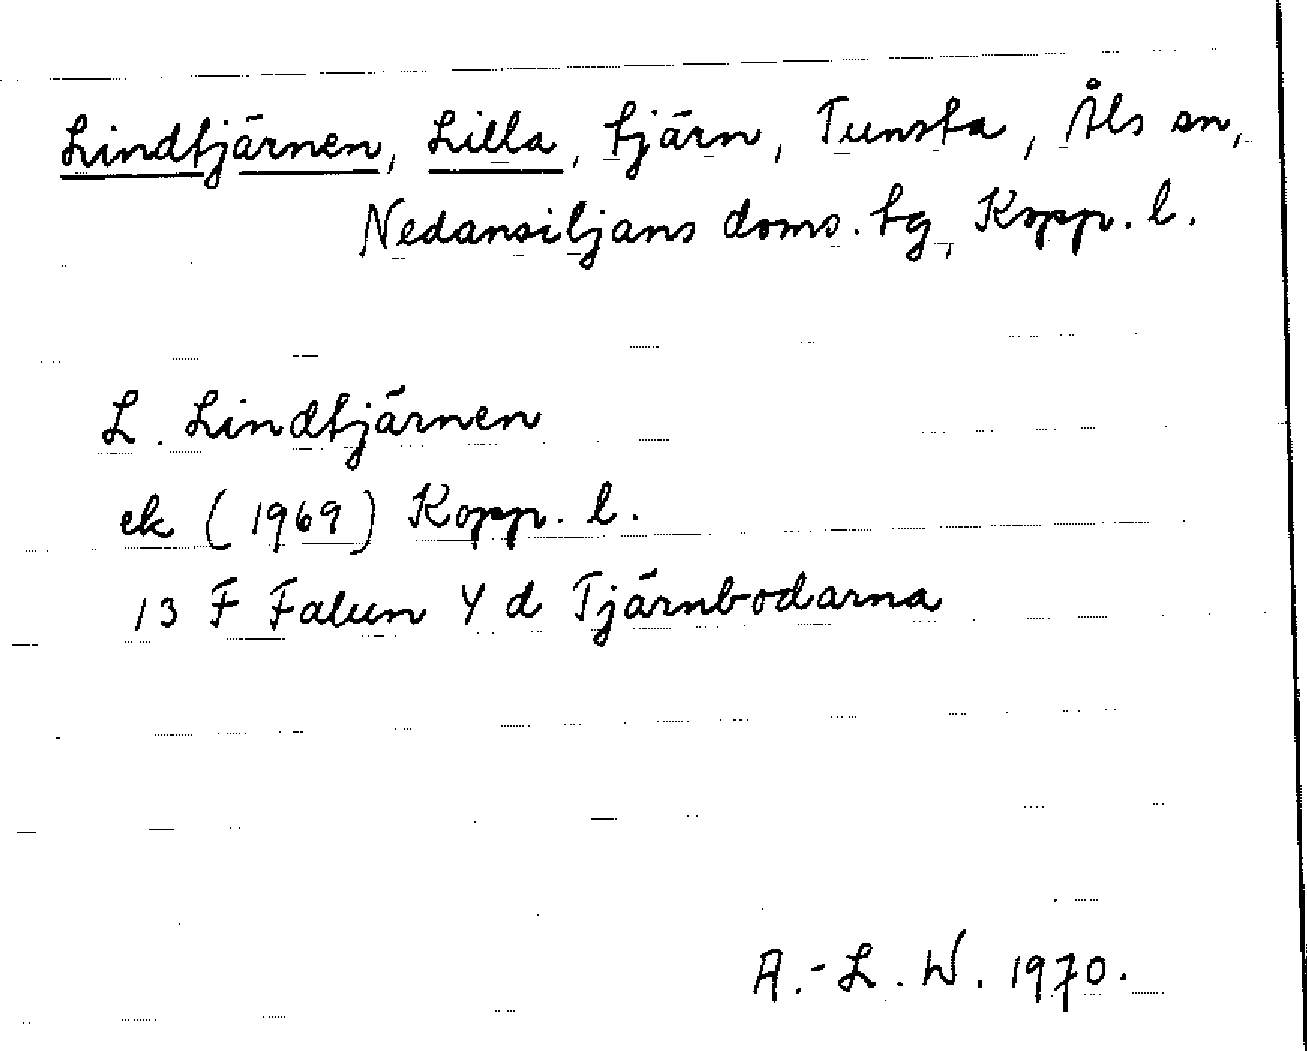 Lindtjärnen, Lilla, tjärn, Tunsta, Åls sn,
Nedansiljans doms. tg, Kopp. l.
L. Lindtjärnen
ek (1969) Kopp. l.
13 F Falun Y d Tjärnbodarna
A.-L. W. 1970.